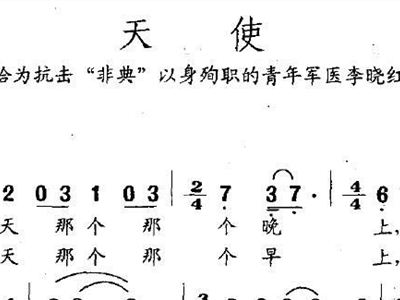 天 使
给为抗击“非典”以身殉职的青年军医李晓红
2 0 3 1 0 3 | 2/4 7 3 7· | 4/4 6
天 那个 那 个 晚 上,
天 那个 那 个 早 上,